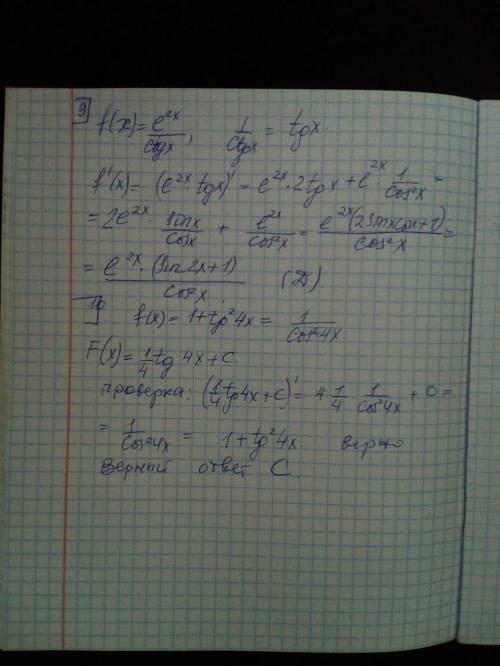 9
f(x) = e^2x / ctgx, 1/ctgx = tgx
f'(x) = (e^2x · tgx)' = e^2x · 2tgx + e^2x · 1/cos²x =
= 2e^2x · sinx/cosx + e^2x/cos²x = e^2x(2sinxcosx+1)/cos²x =
= e^2x · (sin2x+1)/cos²x (Д)
10 f(x) = 1+tg²4x = 1/cos²4x
F(x) = 1/4 tg 4x + C.
проверка: (1/4 tg4x + C)' = 4·1/4 · 1/cos²4x + 0 =
= 1/cos²4x = 1 + tg²4x верно
Верный ответ С.